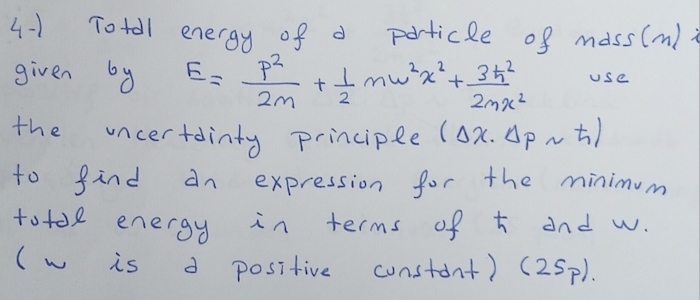 4-) Total energy of a particle of mass (m) i
given by E = p²/2m + 1/2 mw²x² + 3ħ²/2mx² use
the uncertainty principle (Δx. Δp ~ ħ)
to find an expression for the minimum
total energy in terms of ħ and w.
( w is a positive constant) (25p).